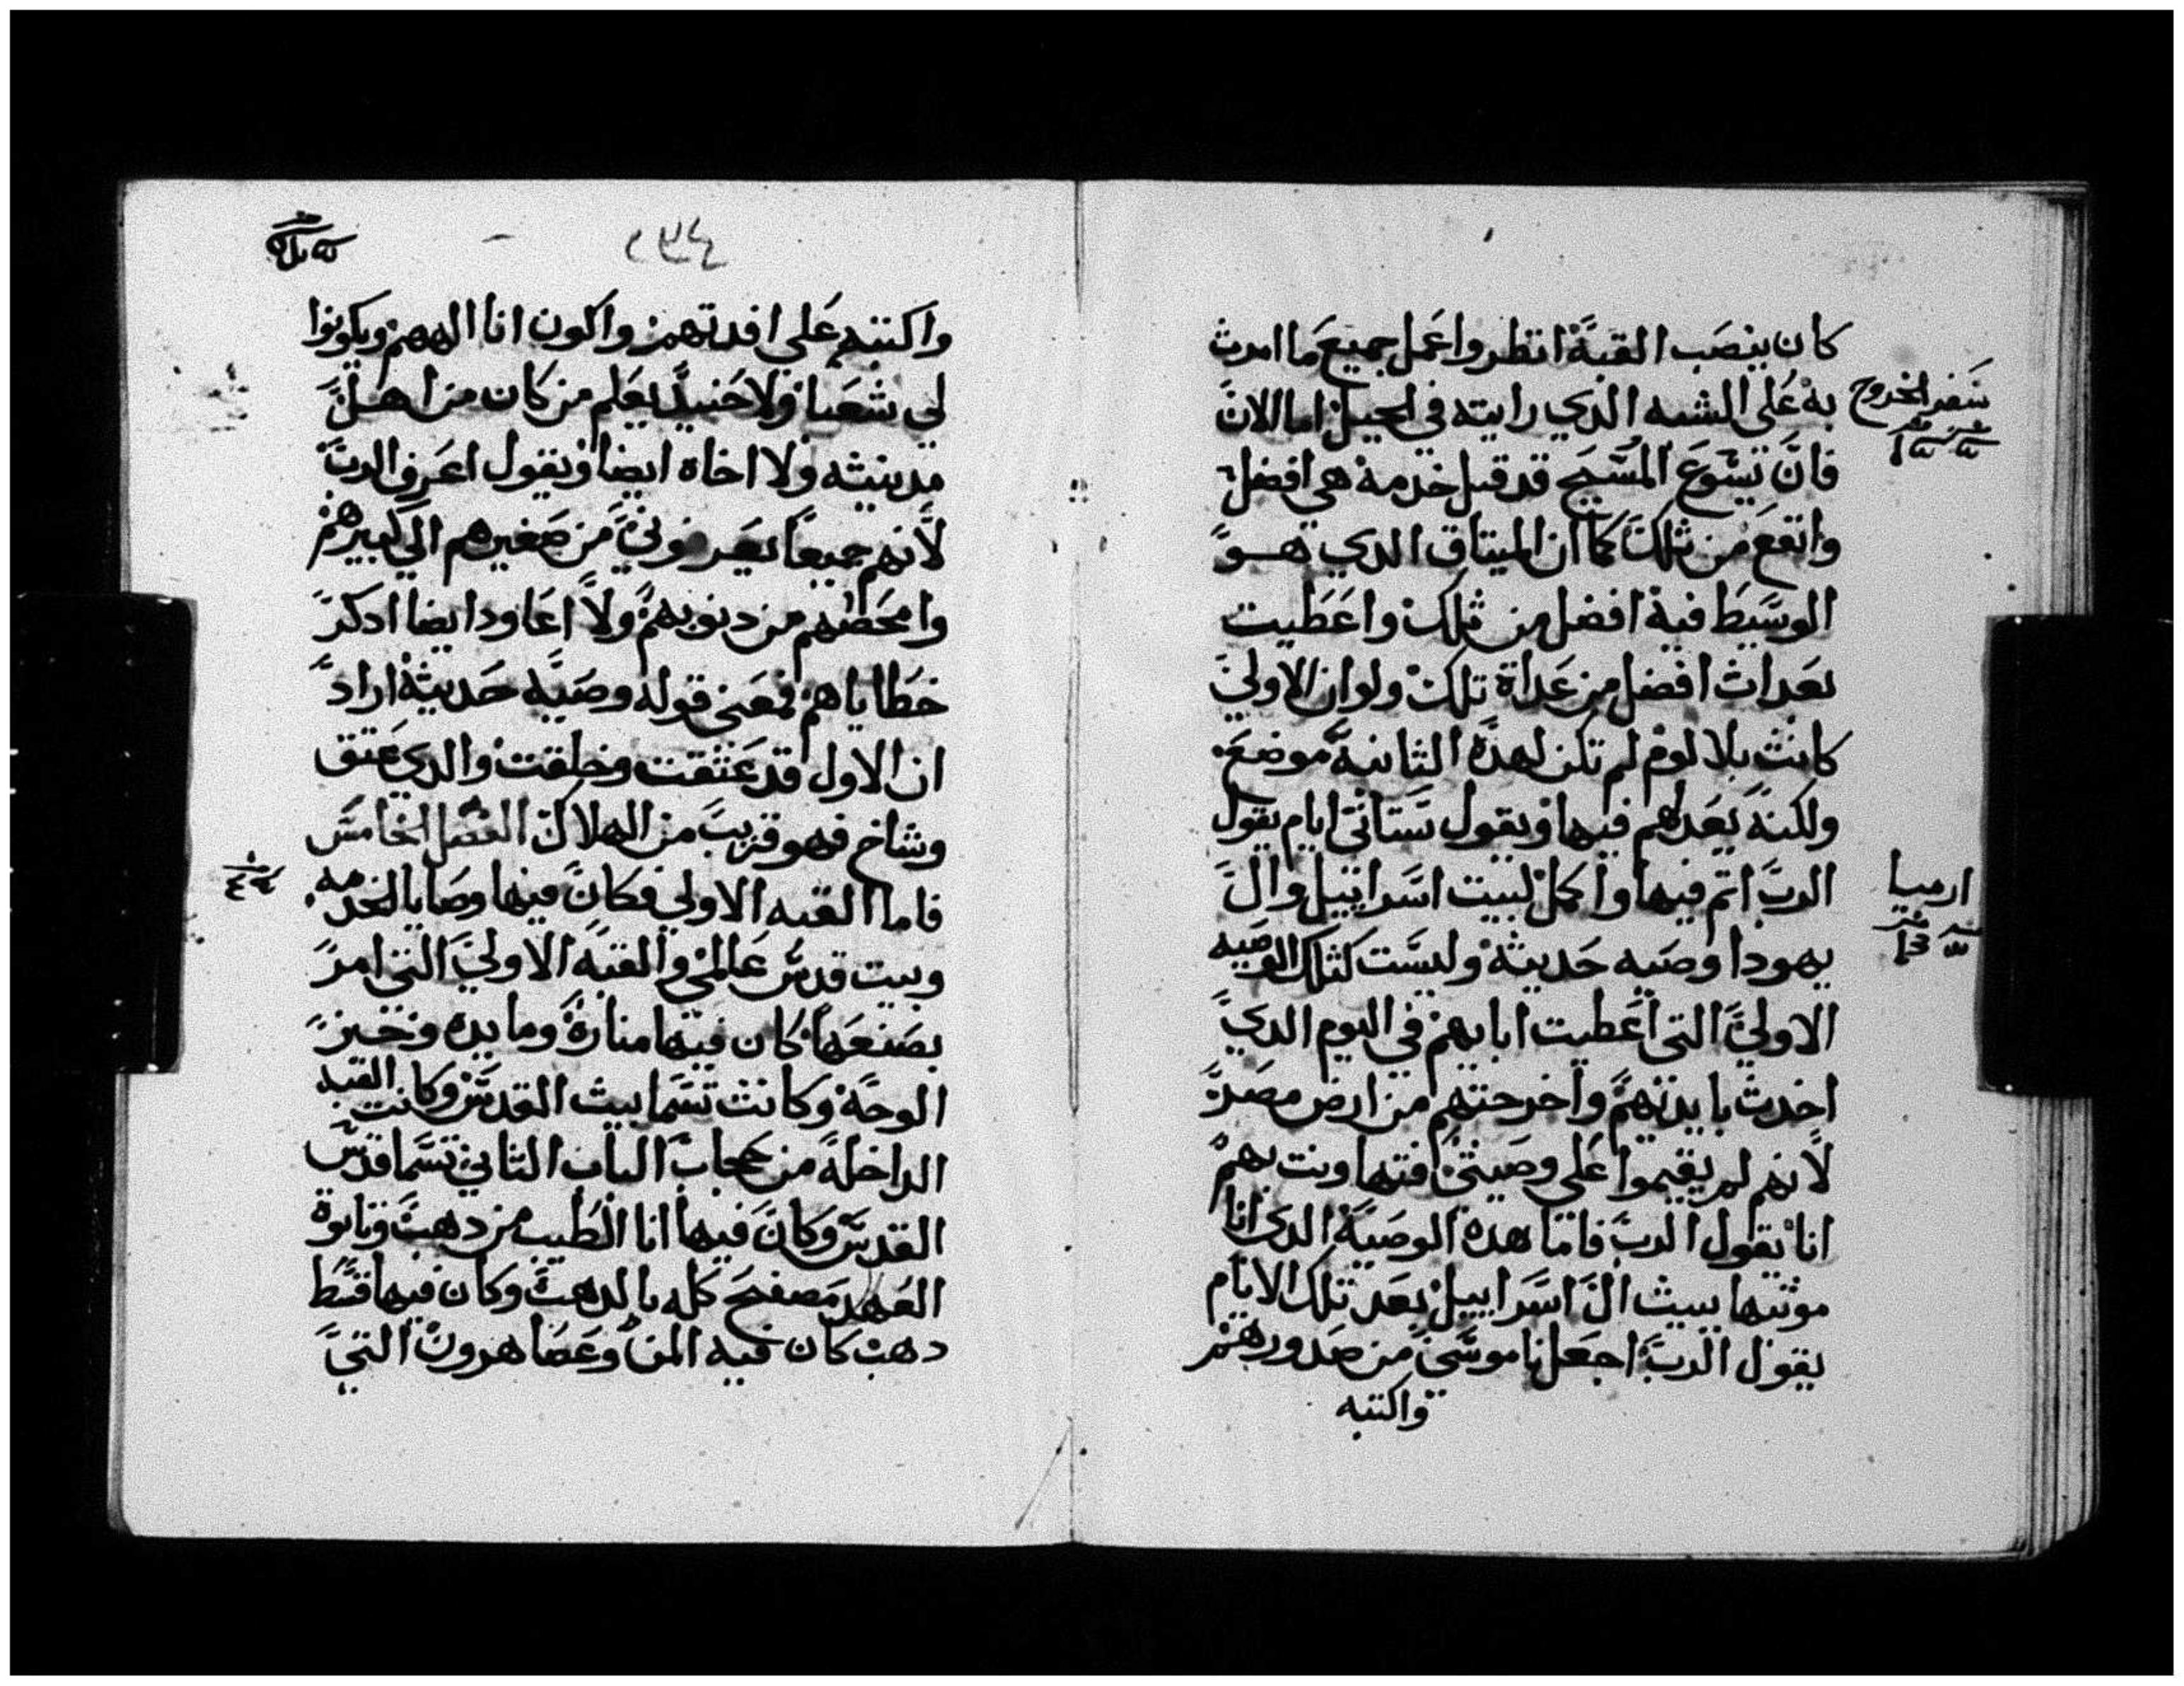 كان ينصب القبة انظر واعمل جميع ما امرت
به على الشبه الدي رايته في الجبل اما الان
فان يسوع المسيح قد قبل خدمة هي افضل
وانفع من تلك كما ان الميتاق الدي هو
الوسيط فية افضل من تلك واعطيت
بعدات افضل من عداة تلك ولو ان الاولي
كانت بلا لوم لم تكن لهدة التانية موضع
ولكنة يعدلهم فيها ويقول ستاتى ايام يقول
الرب اتم فيها واكمل لبيت اسراييل وال
يهودا وصيه حديثة وليست كتلك الوصيه
الاولي التى اعطيت ابايهم في اليوم الدي
اخدت بايديهم واخرجتهم من ارض مصر
لانهم لم يقيموا على وصيتى فتهاونت بهم
انا يقول الرب فاما هده الوصية الدى انا
موتيها بيت ال اسراييل بعد تلك الايام
يقول الرب اجعل ناموسى من صدورهم
واكتبه
سفر الخروج
ارميا
٢٣٤
واكتبه على افدتهم واكون انا الههم ويكونوا
لى شعبا ولا حنيد يعلم من كان من اهل
مدينته ولا اخاه ايضا ويقول اعرف الرب
لانهم جميعا يعرفوني من صغيرهم الى كبيرهم
وامحصهم من دنوبهم ولا اعاود ايضا ادكر
خطاياهم فمعنى قوله وصيه حديثة اراد
ان الاول قد عتقت وخلقت والدي عتق
وشاخ فهو قريب من الهلاك الفصل الخامس
فاما القبه الاولي فكان فيها وصايا الخدمه
وبيت قدس عالمى والقبه الاولي التى امر
بصنعها كان فيها منارة ومايده وخبز
الوجة وكانت تسما بيت القدس وكانت القبه
الداخلة من حجاب الباب التاني تسما قدس
القدس وكان فيها انا الطيب من دهب وتابوة
العهد مصفح كله بالدهب وكان فيها قسط
دهب كان فيه المن وعصا هرون التى